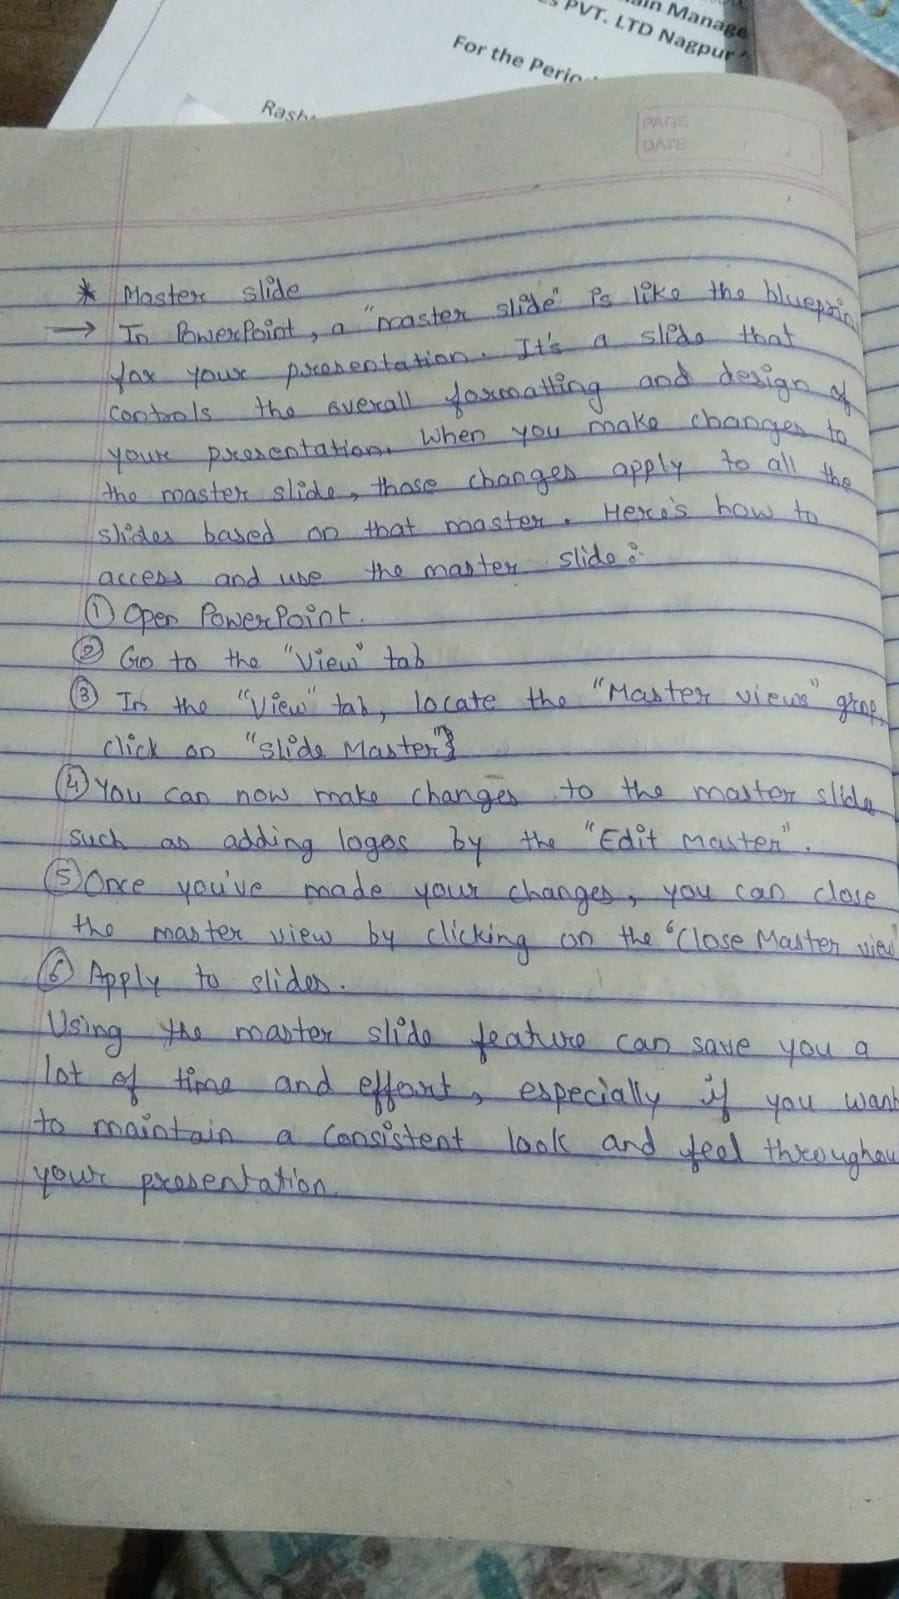 ain Manage
s PVT. LTD Nagpur
For the Perio
Rasht
PAGE
DATE
* Master slide
→ In PowerPoint, a "master slide" is like the blueprin
for your presentation. It's a slide that
controls the overall formatting and design of
your presentation. When you make changes to
the master slide, those changes apply to all the
slides based on that master. Here's how to
access and use the master slide:
① Open PowerPoint.
② Go to the "View" tab
③ In the "View" tab, locate the "Master views" grop,
click on "Slide Master"}
④ You can now make changes to the master slide
such as adding logos by the "Edit Master".
⑤ Once you've made your changes, you can close
the master view by clicking on the "Close Master view"
⑥ Apply to slides.
Using the master slide feature can save you a
lot of time and effort, especially if you want
to maintain a consistent look and feel throughou
your presentation.